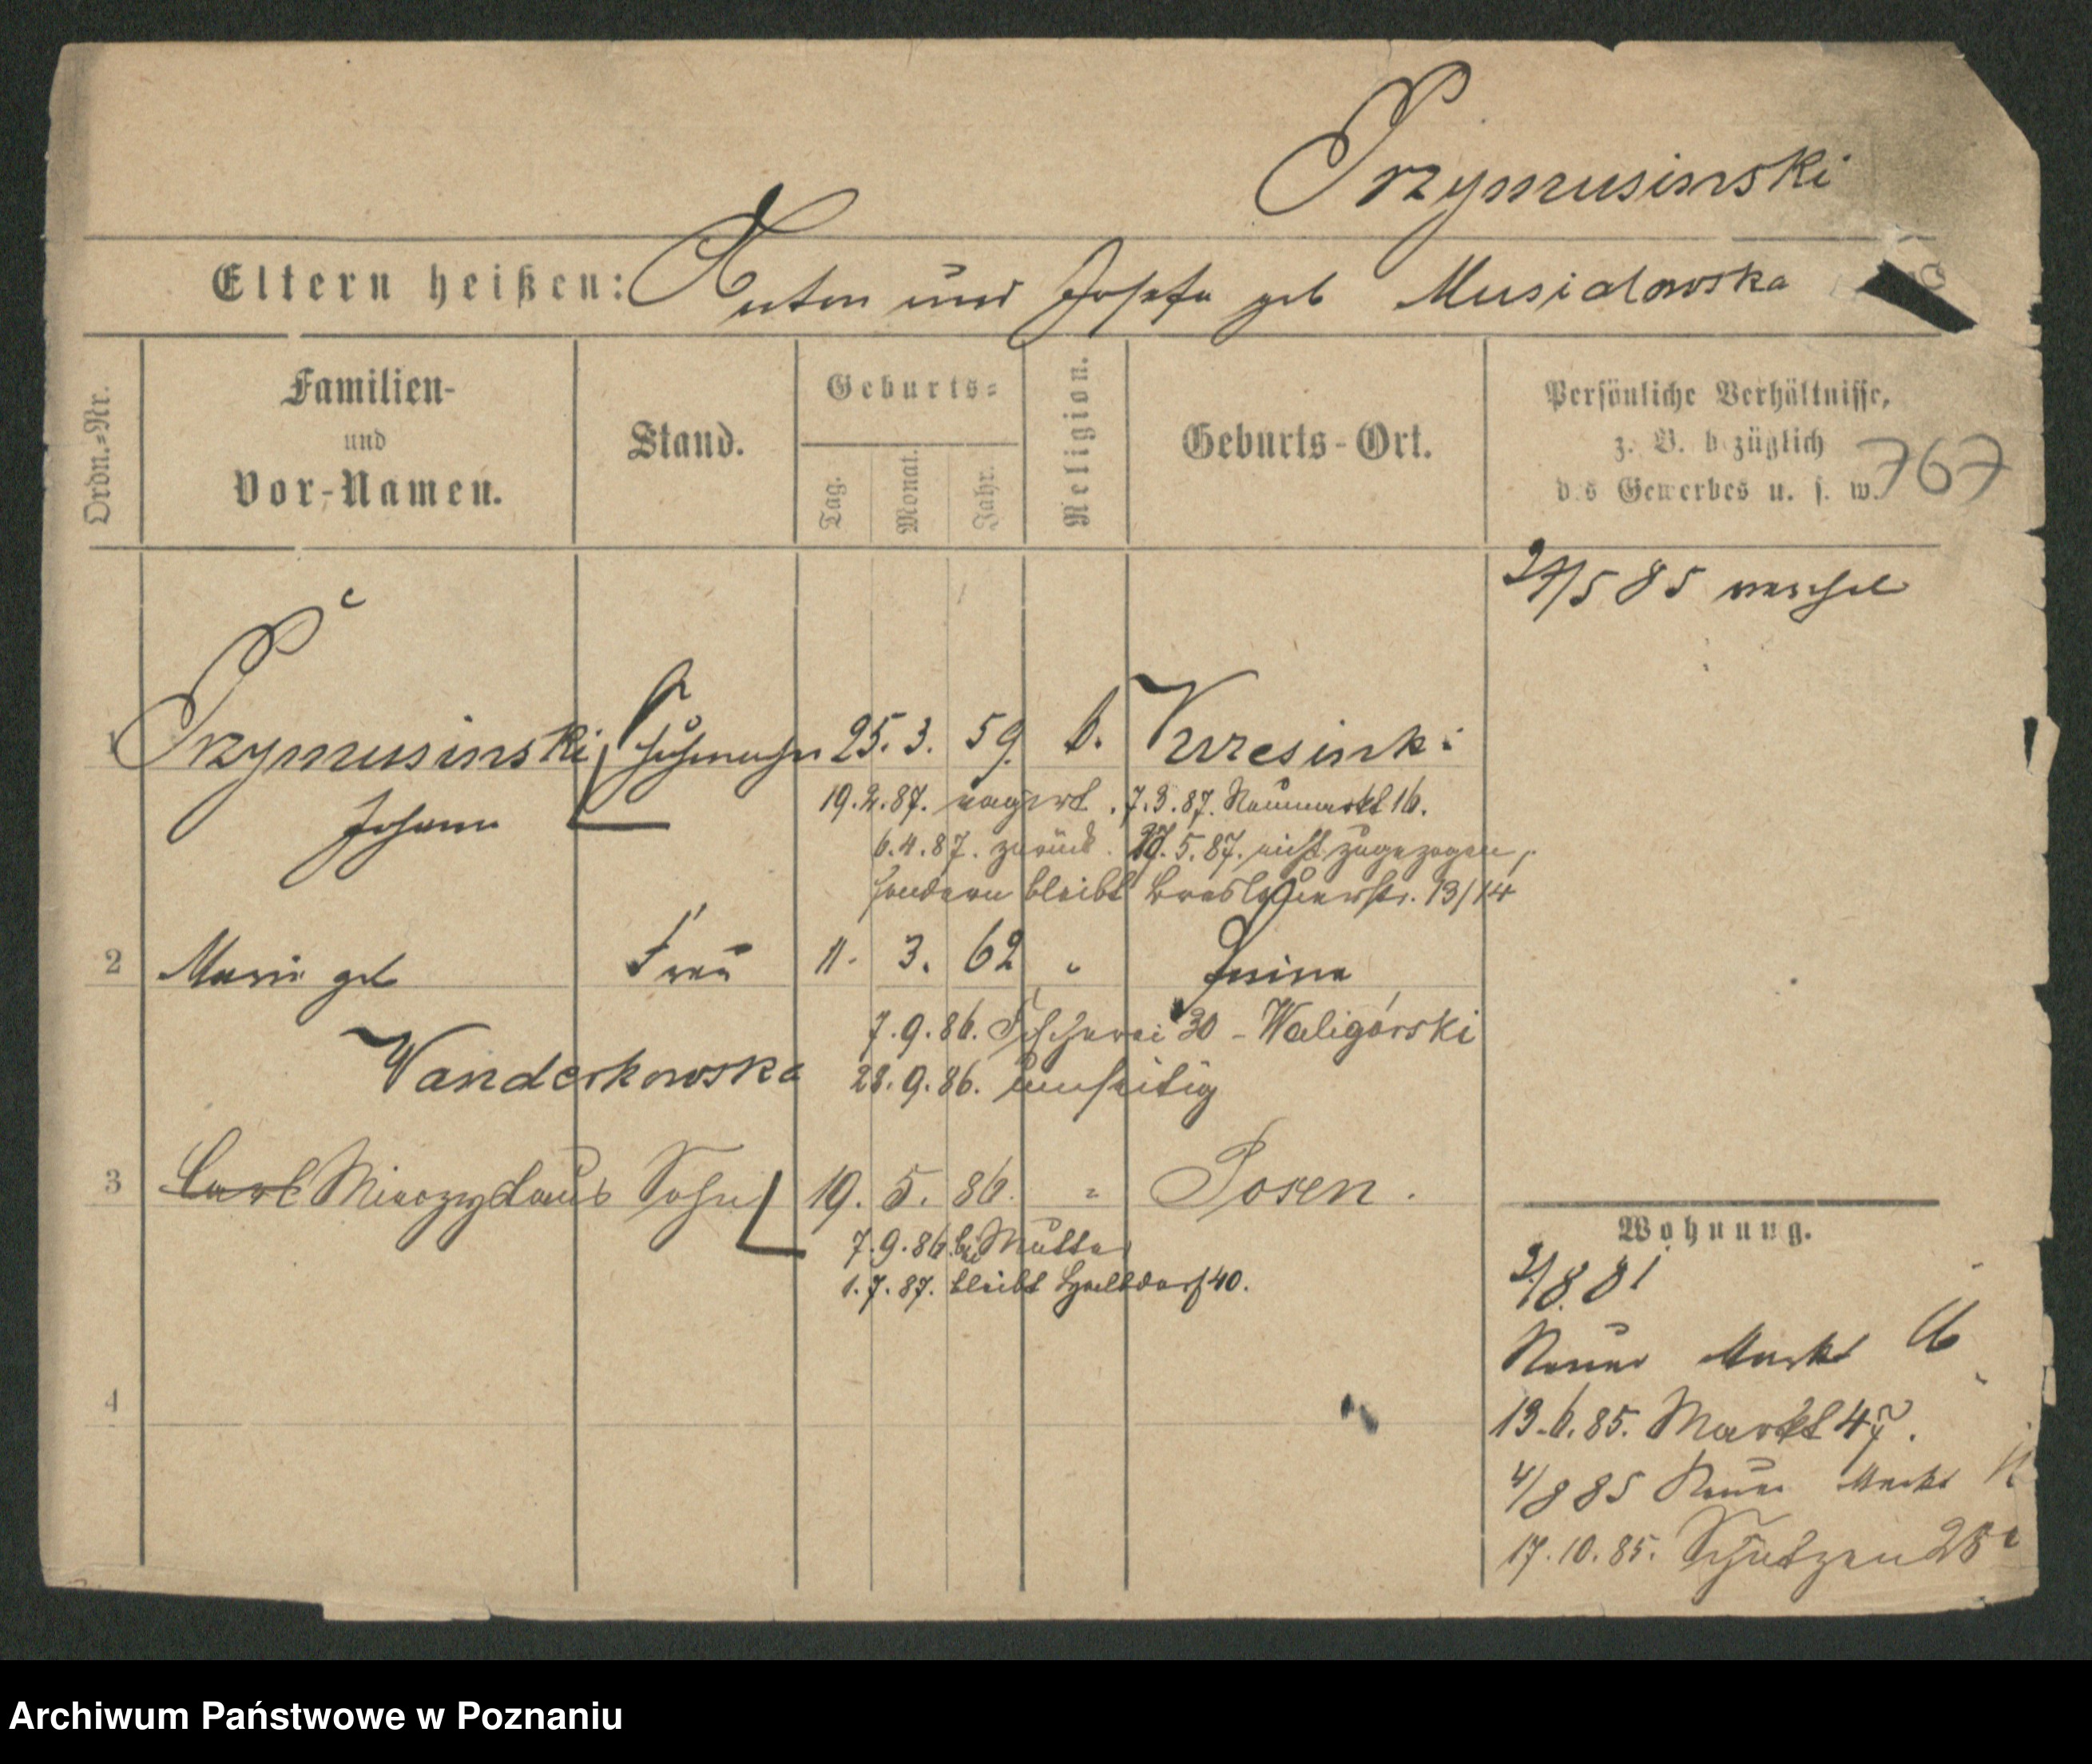 Przymusinski
Eltern heißen: Anton und Josefa geb Musialowska
Ordn.-Nr.
Familien-
und
Vor-Namen.
Stand.
Geburts-
Tag.
Monat.
Jahr.
Religion.
Geburts-Ort.
Persönliche Verhältnisse,
z. B. bezüglich
des Gewerbes u. s. w.
767
24/5 85
1 Przymusinski 25. 3. 59. k. Wresinki
Johann
19.2.87. 7.3.87. Neumarkt 16.
6.4.87. zurück. 27.5.87. nicht zugezogen,
sondern bleibt Breslauerstr. 13/14
2 Marie geb Frau 11. 3. 62 "
Wanderkowska
7.9.86. Fischerei 30 - Waligórski
28.9.86. umseitig
3 Carl Mieczyslaus Sohn 19. 5. 86. " Posen.
7.9.86 bei Mutter
1.7.87. bleibt Halbdorf 40.
4
Wohnung.
2/8. 81
Neuer Markt 16
13.6.85. Markt 47.
4/8 85 Neuer Markt
17.10.85. Schützen 28a